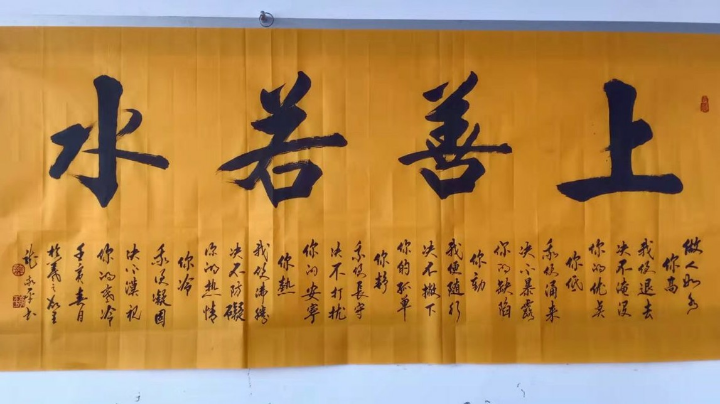 上善若水
做人如水
你高
我便退去
决不淹没
你的优美
你低
我便涌来
决不暴露
你的缺陷
你动
我便随行
决不撇下
你的孤单
你静
我便長守
决不打扰
你的安寧
你熱
我便沸腾
决不防礙
你的热情
你冷
我便凝固
决不漠视
你的寒冷